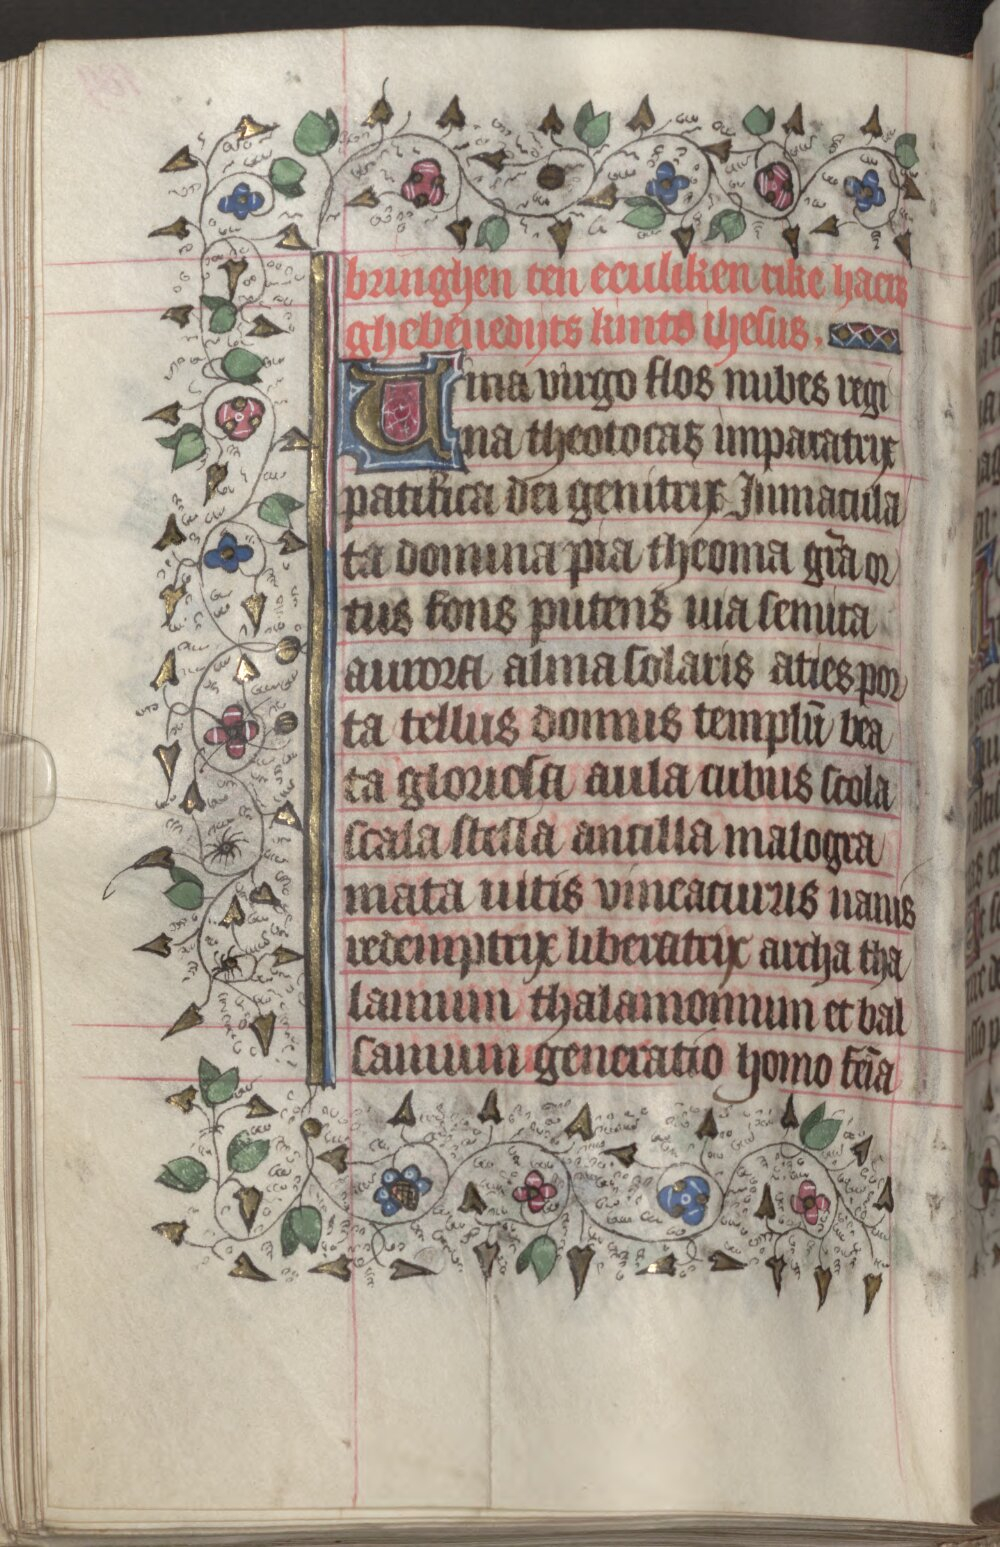 bringhen ten eewliken rike haers
ghebenedijts kints ihesus.
Uina virgo flos nubes regi
na theotocas imparatrix
patifica dei genitrix Inmacula
ta domina pia theoma gr̄a or
tus fons putens uia semita
aurora alma solaris aties por
ta tellus domus templū bea
ta gloriosa aula cubus scola
scala stella ancilla malogra
mata uitis vinea currus nauis
redemptrix liberatrix archa tha
lamum thalamonnun et bal
samum generatio homo fēia